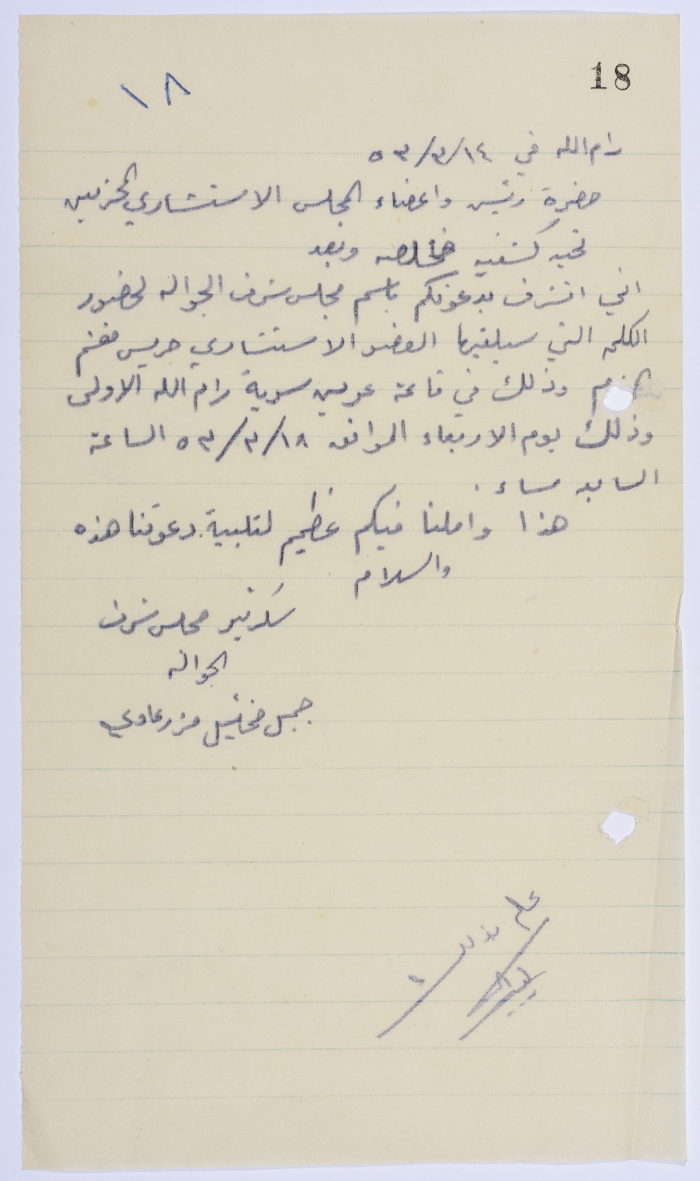 18
١٨
رام الله في ١٤/٣/٥٣
حضرة رئيس واعضاء المجلس الاستشاري المحترمين
تحية كشفيه خالصه وبعد
اني اتشرف بدعوتكم باسم مجلس شرف الجواله لحضور
الكلمه التي سيلقيها العضو الاستشاري جريس
وذلك في قاعة عرين سرية رام الله الاولى
وذلك يوم الاربعاء الموافق ١٨/٣/٥٣ الساعة
السابعه مساء.
هذا واملنا فيكم عظيم لتلبية دعوتنا هذه
والسلام
سكرتير مجلس شرف
الجواله
جميل
علم بذلك